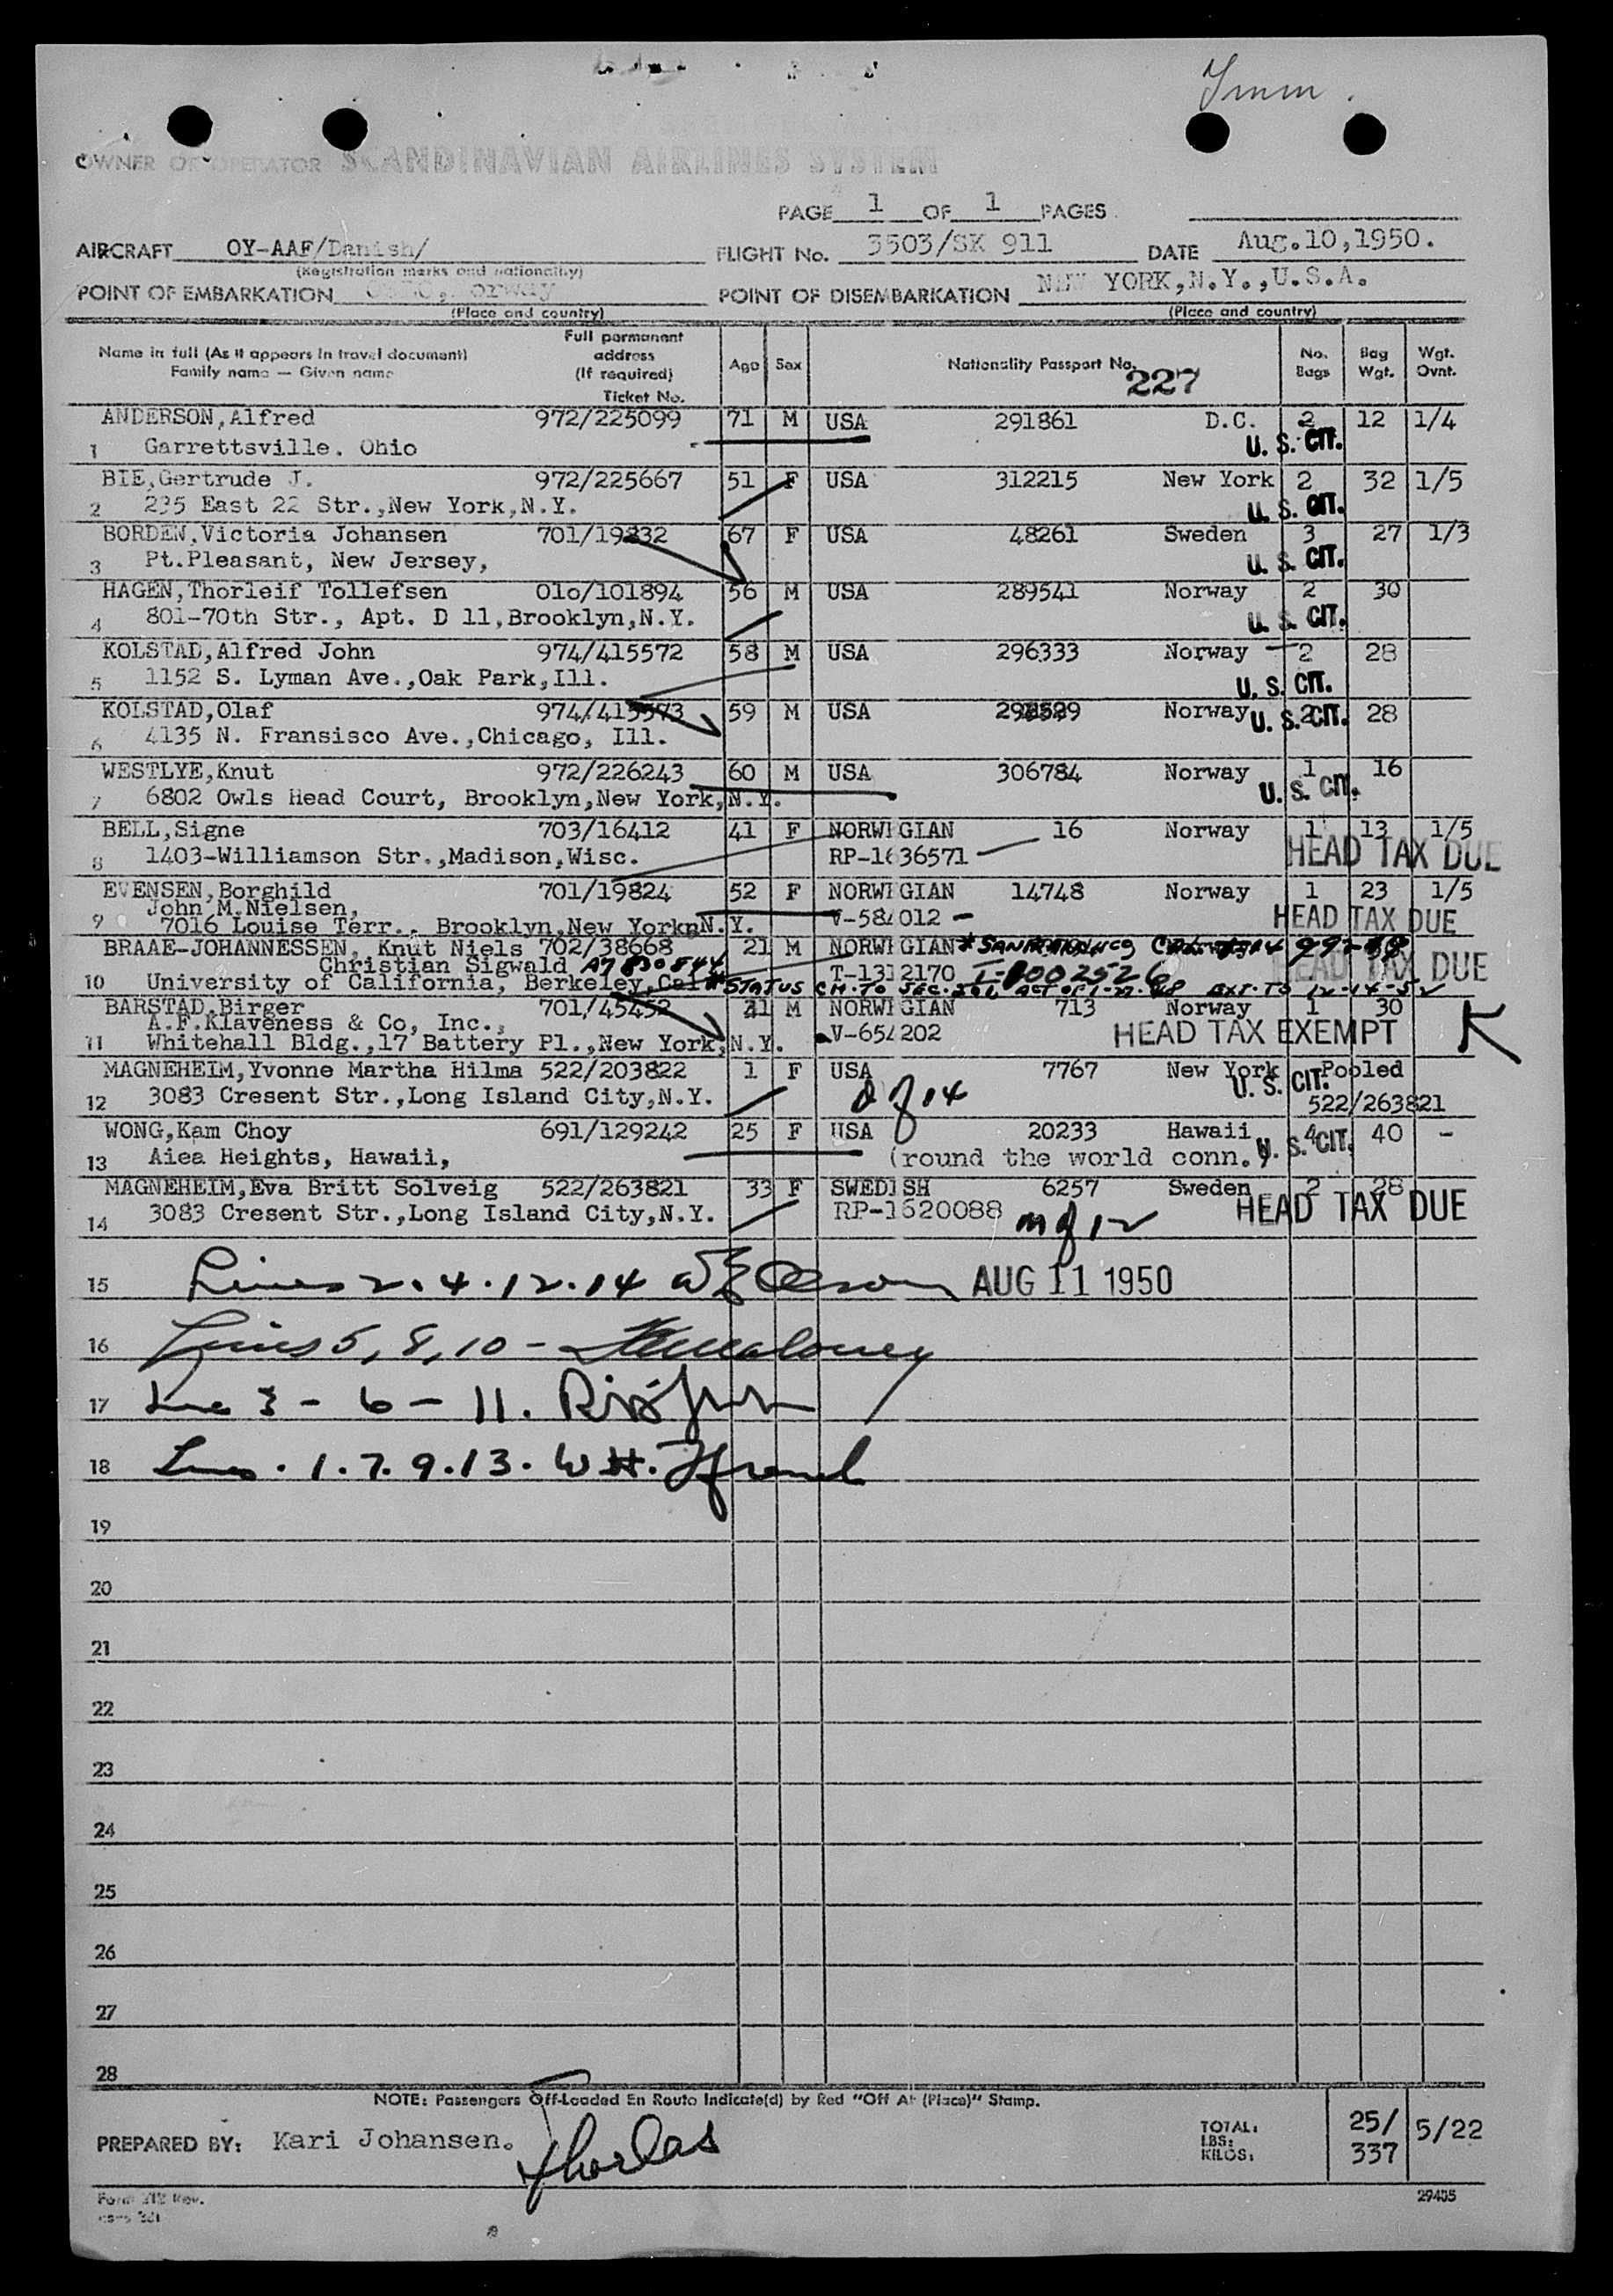 Imm.
OWNER OR OPERATOR SCANDINAVIAN AIRLINES SYSTEM
PAGE 1 OF 1 PAGES
AIRCRAFT OY-AAF/Danish/ FLIGHT No. 3503/SK 911 DATE Aug.10,1950.
(Registration marks and nationality)
POINT OF EMBARKATION OSLO, Norway POINT OF DISEMBARKATION NEW YORK,N.Y.,U.S.A.
(Place and country) (Place and country)
Name in full (As it appears in travel document) Family name — Given name Full permanent address (If required) Ticket No. Age Sex Nationality Passport No. No. Bags Bag Wgt. Wgt. Ovnt.
227
ANDERSON,Alfred 972/225099 71 M USA 291861 D.C. 2 12 1/4
1 Garrettsville. Ohio U. S. CIT.
BIE,Gertrude J. 972/225667 51 F USA 312215 New York 2 32 1/5
2 235 East 22 Str.,New York,N.Y. U. S. CIT.
BORDEN,Victoria Johansen 701/19832 67 F USA 48261 Sweden 3 27 1/3
3 Pt.Pleasant, New Jersey, U. S. CIT.
HAGEN,Thorleif Tollefsen 01o/101894 56 M USA 289541 Norway 2 30
4 801-70th Str., Apt. D 11,Brooklyn,N.Y. U. S. CIT.
KOLSTAD,Alfred John 974/415572 58 M USA 296333 Norway 2 28
5 1152 S. Lyman Ave.,Oak Park,Ill. U. S. CIT.
KOLSTAD,Olaf 974/415573 59 M USA Norway 2 28 U. S. CIT.
6 4135 N. Fransisco Ave.,Chicago, Ill.
WESTLYE,Knut 972/226243 60 M USA 306784 Norway 1 16
7 6802 Owls Head Court, Brooklyn,New York,N.Y. U. S. CIT.
BELL,Signe 703/16412 41 F NORWEGIAN 16 Norway 1 13 1/5
8 1403-Williamson Str.,Madison,Wisc. RP-1636571 HEAD TAX DUE
EVENSEN,Borghild 701/19824 52 F NORWEGIAN 14748 Norway 1 23 1/5
John M.Nielsen,
9 7016 Louise Terr., Brooklyn,New York,N.Y. V-584012 HEAD TAX DUE
BRAAE-JOHANNESSEN, Knut Niels 702/38668 21 M NORWEGIAN
Christian Sigwald A7830844 T-1312170 I-1002526 HEAD TAX DUE
10 University of California, Berkeley,Cal *STATUS CH. TO SEC. ACT OF EXT. TO 12-14-52
BARSTAD,Birger 701/45452 21 M NORWEGIAN 713 Norway 1 30
A.F.Klaveness & Co, Inc.,
11 Whitehall Bldg.,17 Battery Pl.,New York,N.Y. V-654202 HEAD TAX EXEMPT K
MAGNEHEIM,Yvonne Martha Hilma 522/203822 1 F USA 7767 New York Pooled
12 3083 Cresent Str.,Long Island City,N.Y. d of 14 U. S. CIT. 522/263821
WONG,Kam Choy 691/129242 25 F USA 20233 Hawaii 4 40 -
13 Aiea Heights, Hawaii, (round the world conn.) U. S. CIT.
MAGNEHEIM,Eva Britt Solveig 522/263821 33 F SWEDISH 6257 Sweden 2 28
14 3083 Cresent Str.,Long Island City,N.Y. RP-1620088 m of 12 HEAD TAX DUE
15 Lines 2.4.12.14 AUG 11 1950
16 Lines 5, 8, 10 -
17 Line 3 - 6 - 11.
18 Lines. 1.7.9.13. W H.
19
20
21
22
23
24
25
26
27
28
NOTE: Passengers Off-Loaded En Route Indicate(d) by Red "Off At (Place)" Stamp.
PREPARED BY: Kari Johansen. TOTAL: LBS: KILOS: 25/ 337 5/22
29405